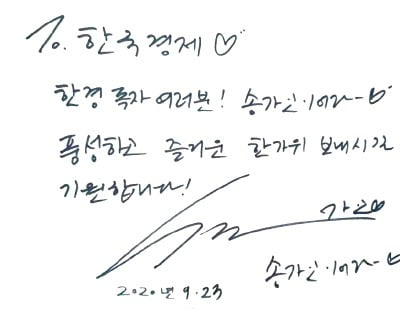 To. 한국경제♡
한경 독자 여러분! 송가인이어라~
풍성하고 즐거운 한가위 보내시길
기원합니다!
가인
송가인이어라~
2020년 9.23